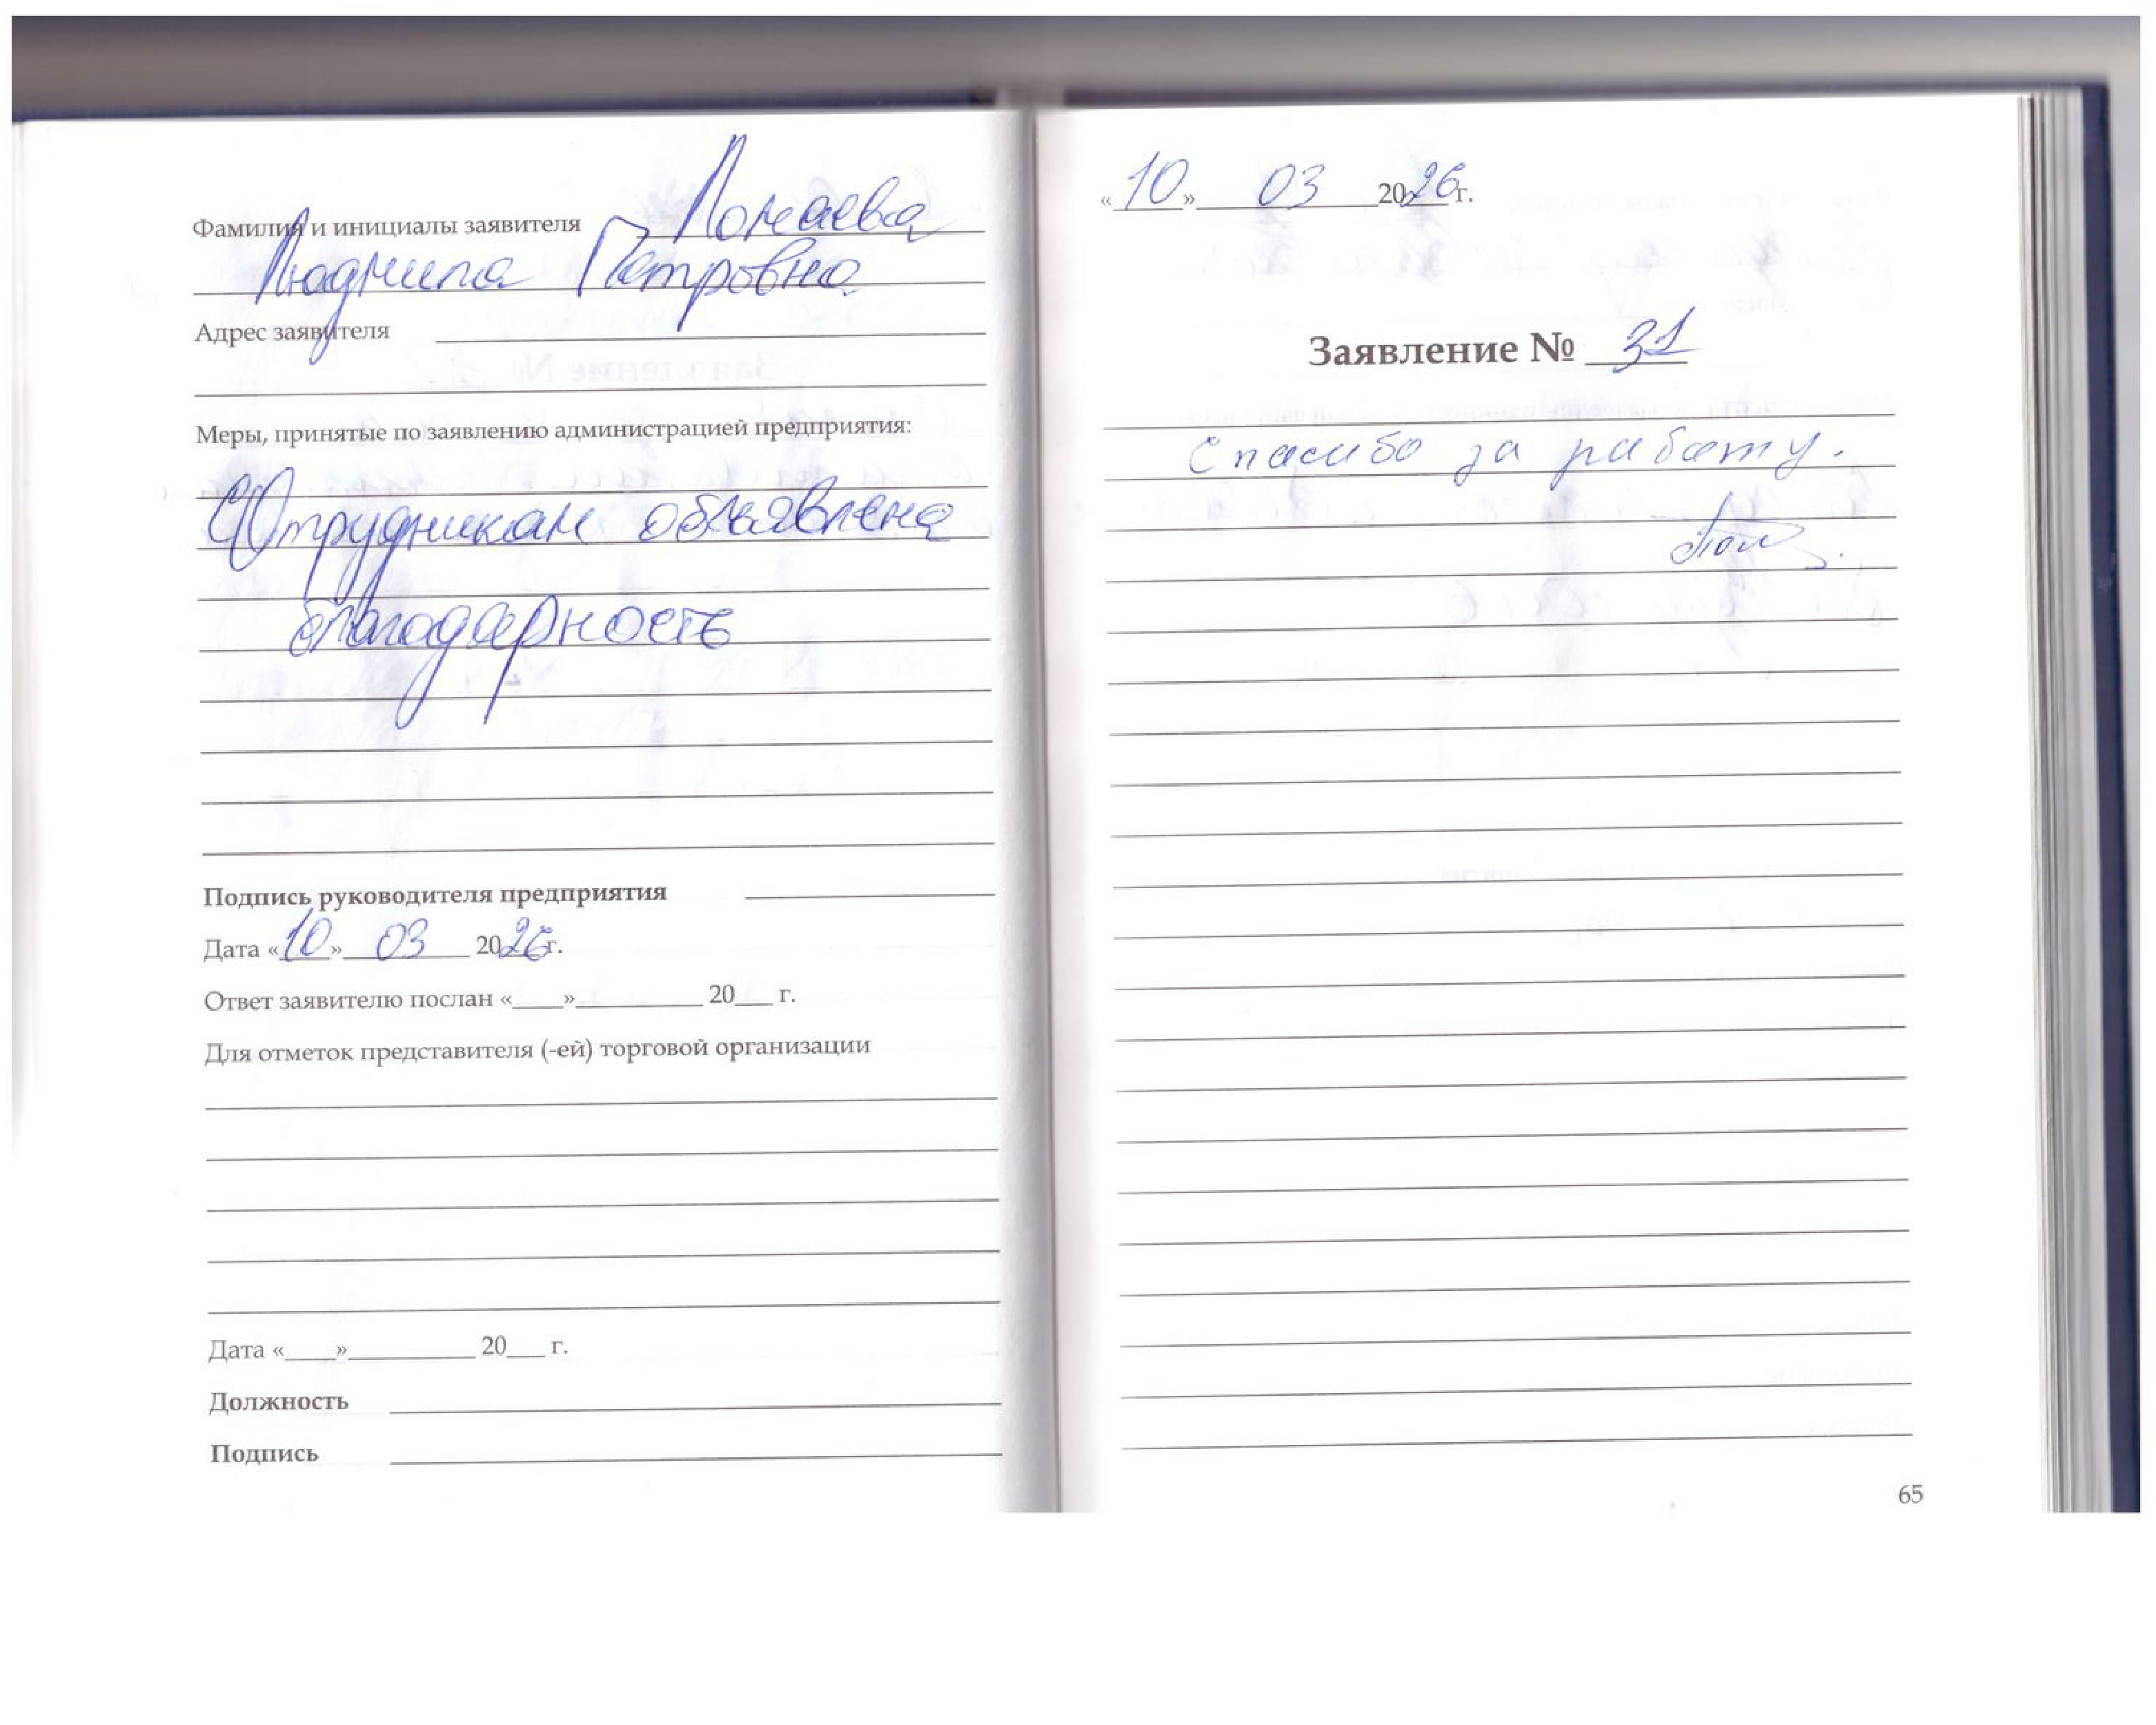 Фамилия и инициалы заявителя Ломаева
Людмила Петровна
Адрес заявителя
Меры, принятые по заявлению администрацией предприятия:
Сотрудникам объявлена
благодарность
Подпись руководителя предприятия
Дата «10» 03 2026 г.
Ответ заявителю послан «____»__________ 20___ г.
Для отметок представителя (-ей) торговой организации
Дата «____»__________ 20___ г.
Должность
Подпись
«10» 03 2026 г.
Заявление № 31
Спасибо за работу.
65